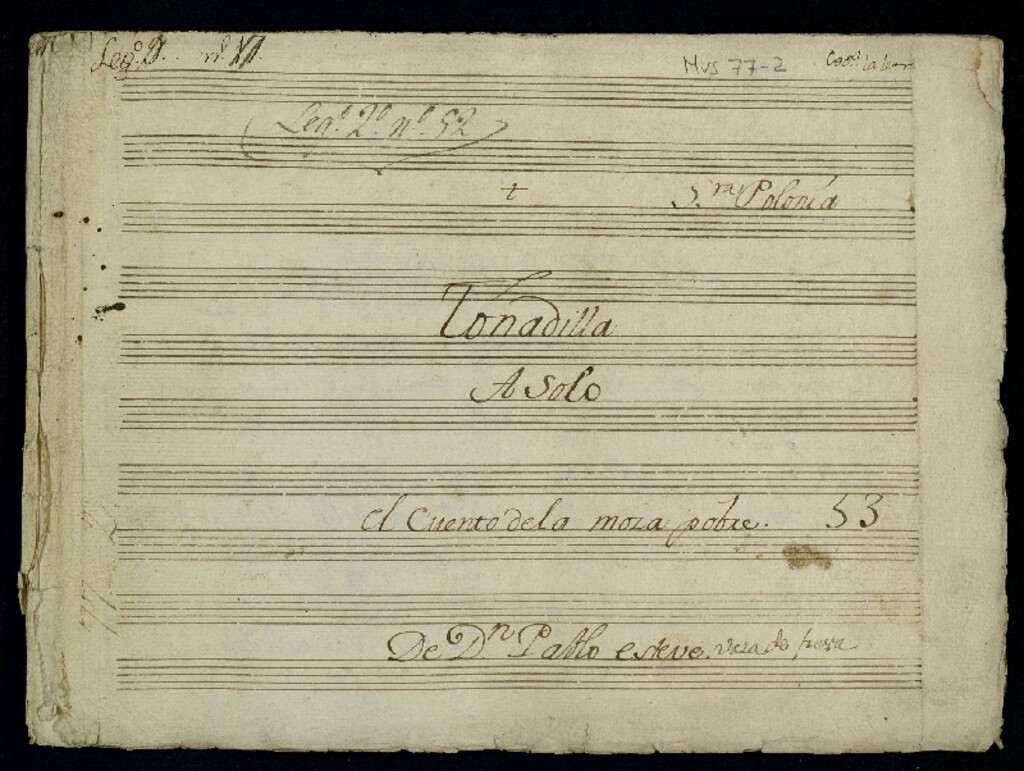 Leg.º 2.º nº
Mus 77-2
Leg.º 2.º nº. 52
S.ra Polonia
Tonadilla
A Solo
el Cuento dela moza pobre. 53
De D.n Pablo esteve.